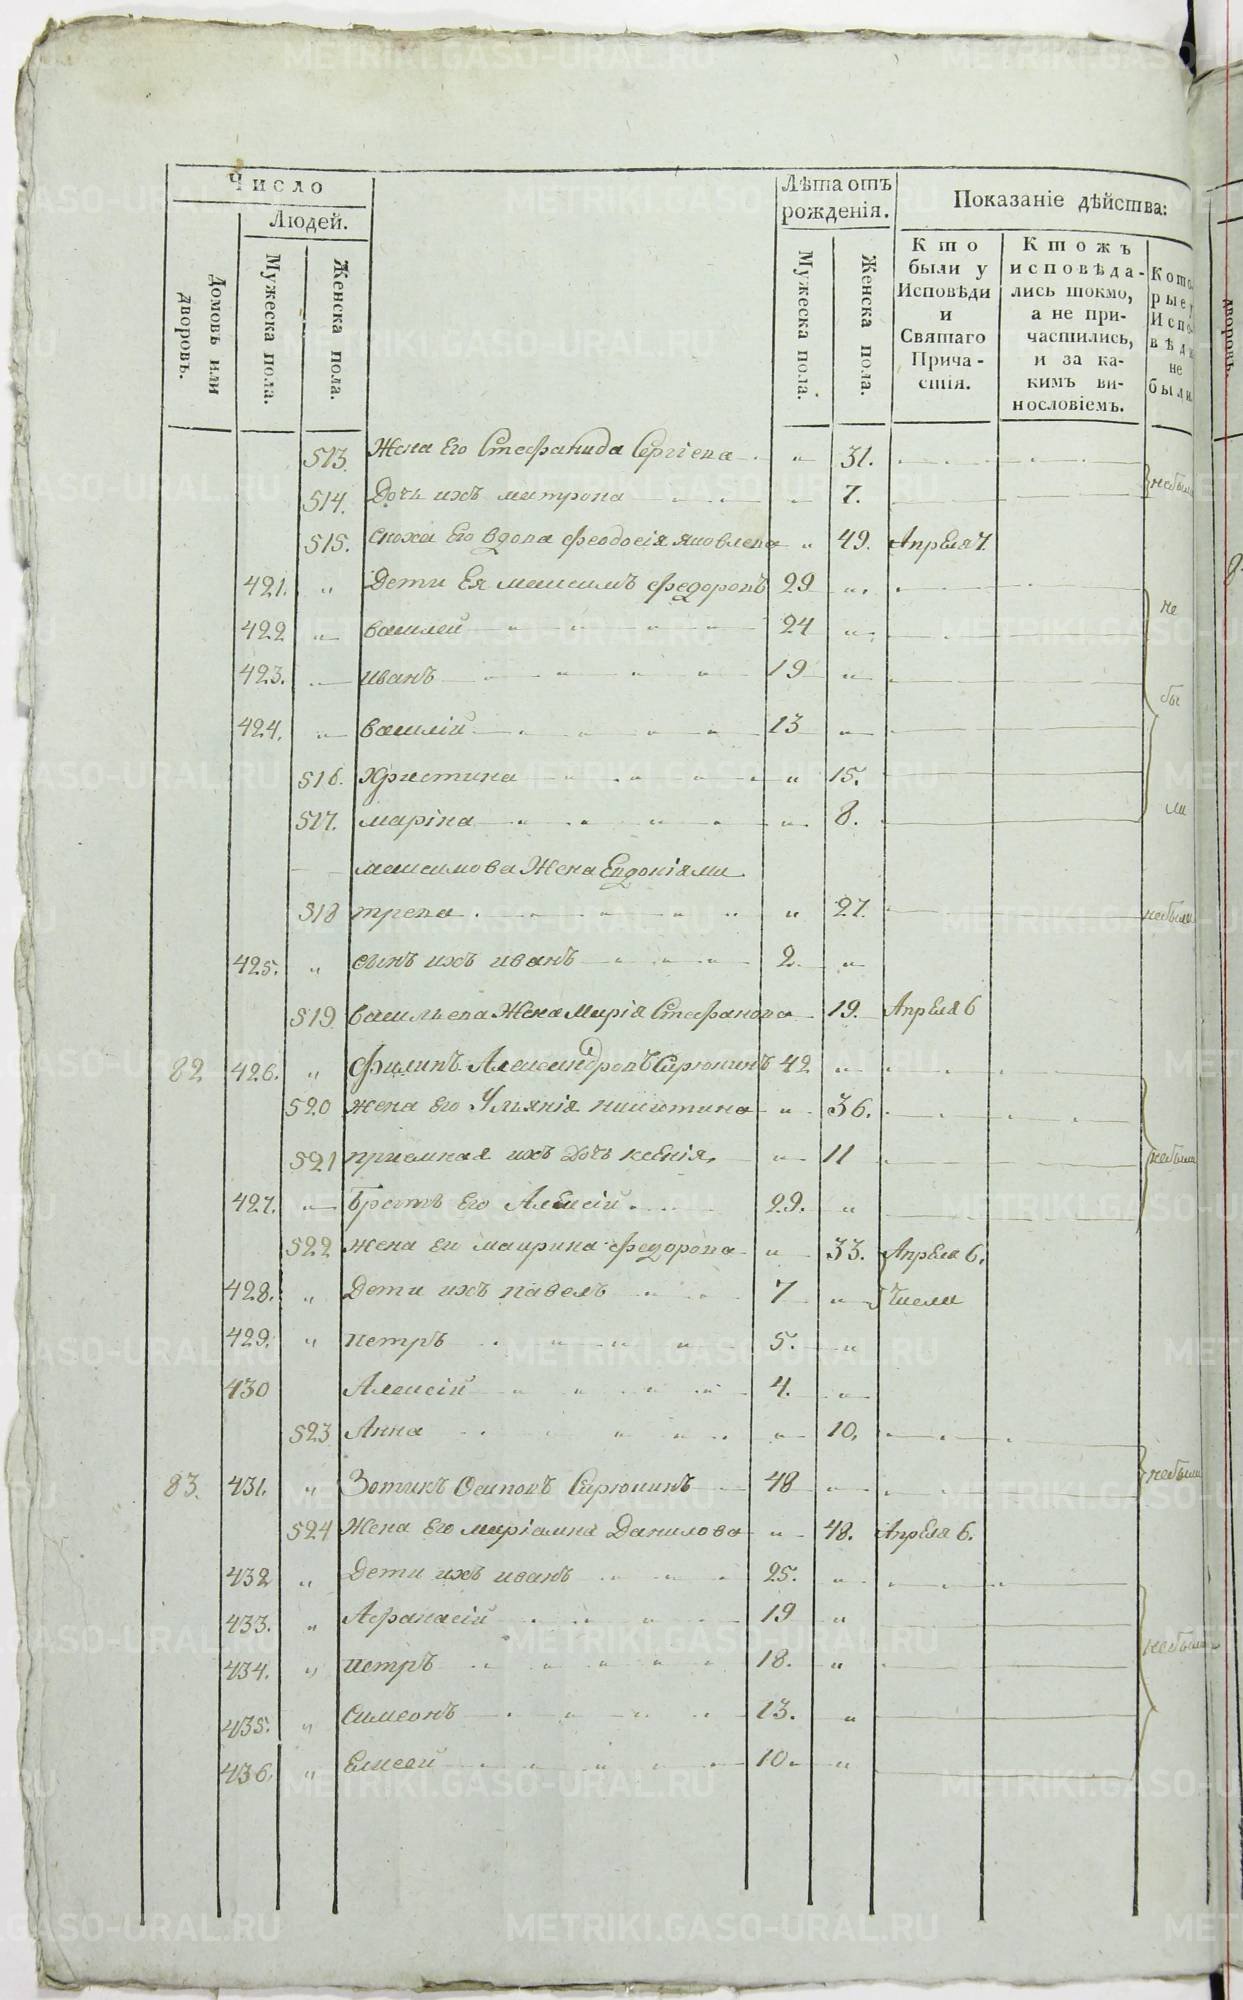 Число
Людей.
Домовъ или дворовъ.
Мужеска пола.
Женска пола.
Лѣта отъ рожденія.
Мужеска пола.
Женска пола.
Показаніе дѣйства:
Кто были у Исповѣди и Святаго Причастія.
Ктожъ исповѣдались токмо, а не причастились, и за какимъ винословіемъ.
Которые у Исповѣди не были
513. Жена Его Стефанида Сергіева " 31.
514. Дочь ихъ матрона " 7. небыли
515. сноха Его вдова Феодосія Яковлева " 49. Апреля 7.
421. " Дети Ея максимъ Федоровъ 29 "
422 " василей 24 " не
423. иванъ 19 " бы
424. " василій 13 "
516. Христина " 15.
517. маріна " 8. ли
максимова Жена Евдокія ми
518 трева " 27. небыли
425. " сынъ ихъ иванъ 2 "
519 васильева Жена Марія Стефанова 19. Апреля 6
82 426. " Филипъ Александровъ Сирюкинъ 42 "
520 жена Его Ульянія никитина " 36.
521 приемная ихъ Дочь ксенія. " 11 небыли
427. " Братъ Его Алексій 29. "
522 жена Ег маирина Федорова " 33. Апреля 6.
428. " Дети ихъ павелъ 7 " числа
429. " петръ 5. "
430 Алексій 4. "
523 Анна " 10.
83. 431. " Зотикъ Осиповъ Сирюкинъ 48 " небыли
524 Жена Его маріамна Данилова " 48. Апреля 6.
432 " Дети ихъ иванъ 25. "
433. " Афанасій 19 "
434. " петръ 18. " небыли
435. " симеонъ 13. "
436. " Елисей 10. "
дворовъ.
METRIKI.GASO-URAL.RU